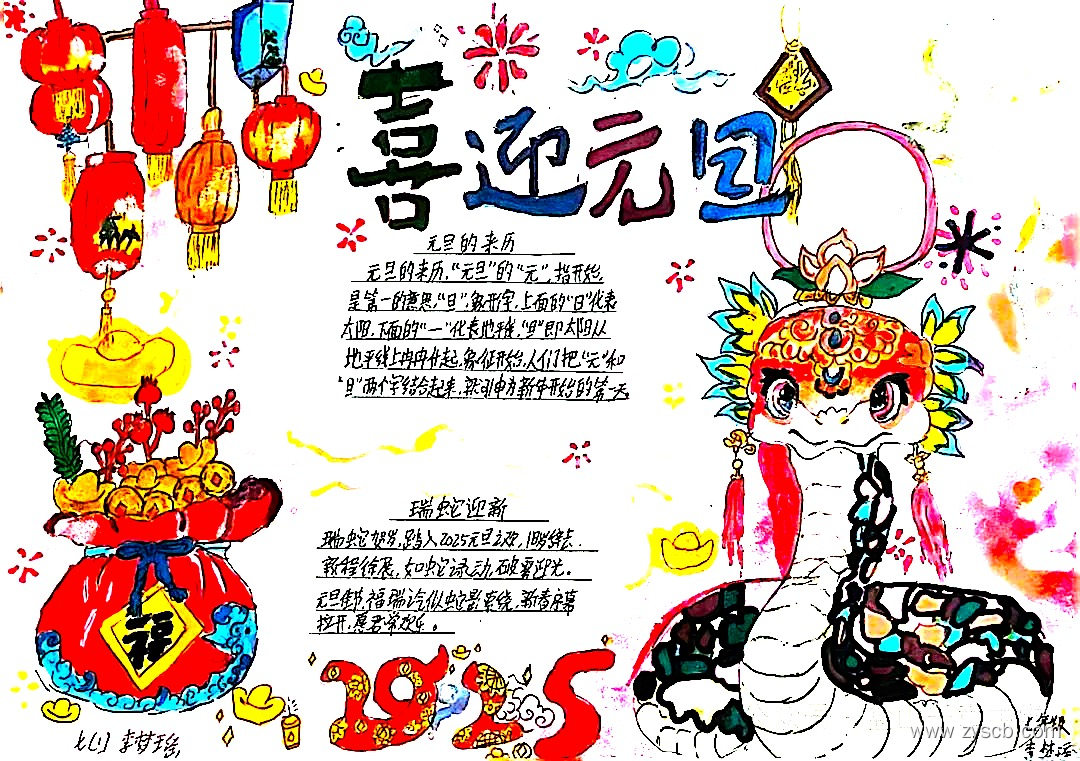 喜迎元旦
元旦的来历
元旦的来历,“元旦”的“元”,指开始,
是第一的意思,“旦”,象形字,上面的“日”代表
太阳,下面的“一”代表地平线,“旦”即太阳从
地平线上冉冉升起,象征开始,人们把“元”和
“旦”两个字结合起来,就引申为新年开始的第一天
瑞蛇迎新
瑞蛇贺岁,踏入2025元旦之欢,旧岁辞去.
新程徐展,如蛇泳动,破雾迎光。
元旦佳节,福瑞之气似蛇影萦绕,新春序幕
拉开,愿君常欢乐。
福
2025
七(1) 李梦瑶
七年级
www.zyscb.com